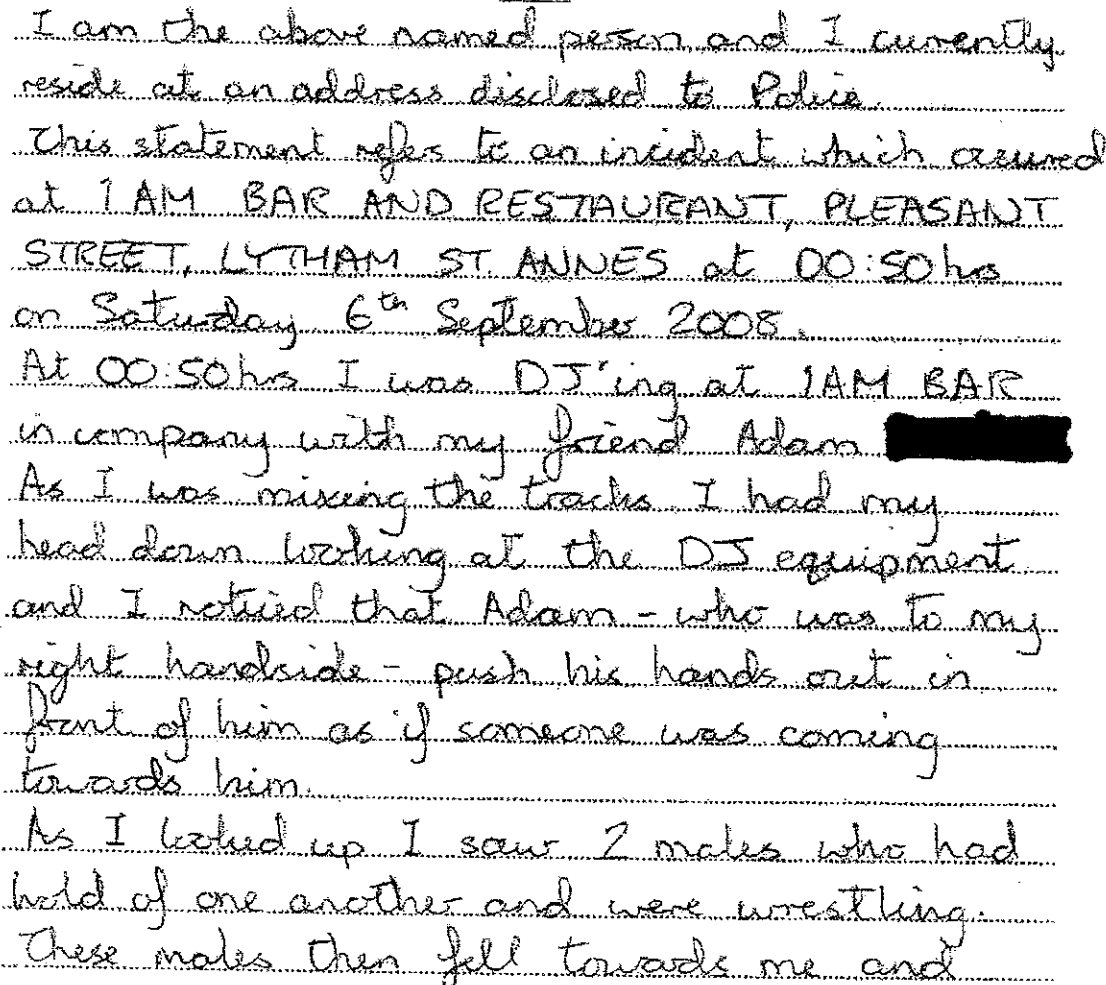 I am the above named person and I currently
reside at an address disclosed to Police.
This statement refers to an incident which occured
at 1AM BAR AND RESTAURANT, PLEASANT
STREET, LYTHAM ST ANNES at 00:50hrs
on Saturday 6th September 2008.
At 00:50hrs I was DJ'ing at 1AM BAR
in company with my friend Adam
As I was mixing the tracks I had my
head down looking at the DJ equipment
and I noticed that Adam - who was to my
right handside - push his hands out in
front of him as if someone was coming
towards him.
As I looked up I saw 2 males who had
hold of one another and were wrestling.
These males then fell towards me and